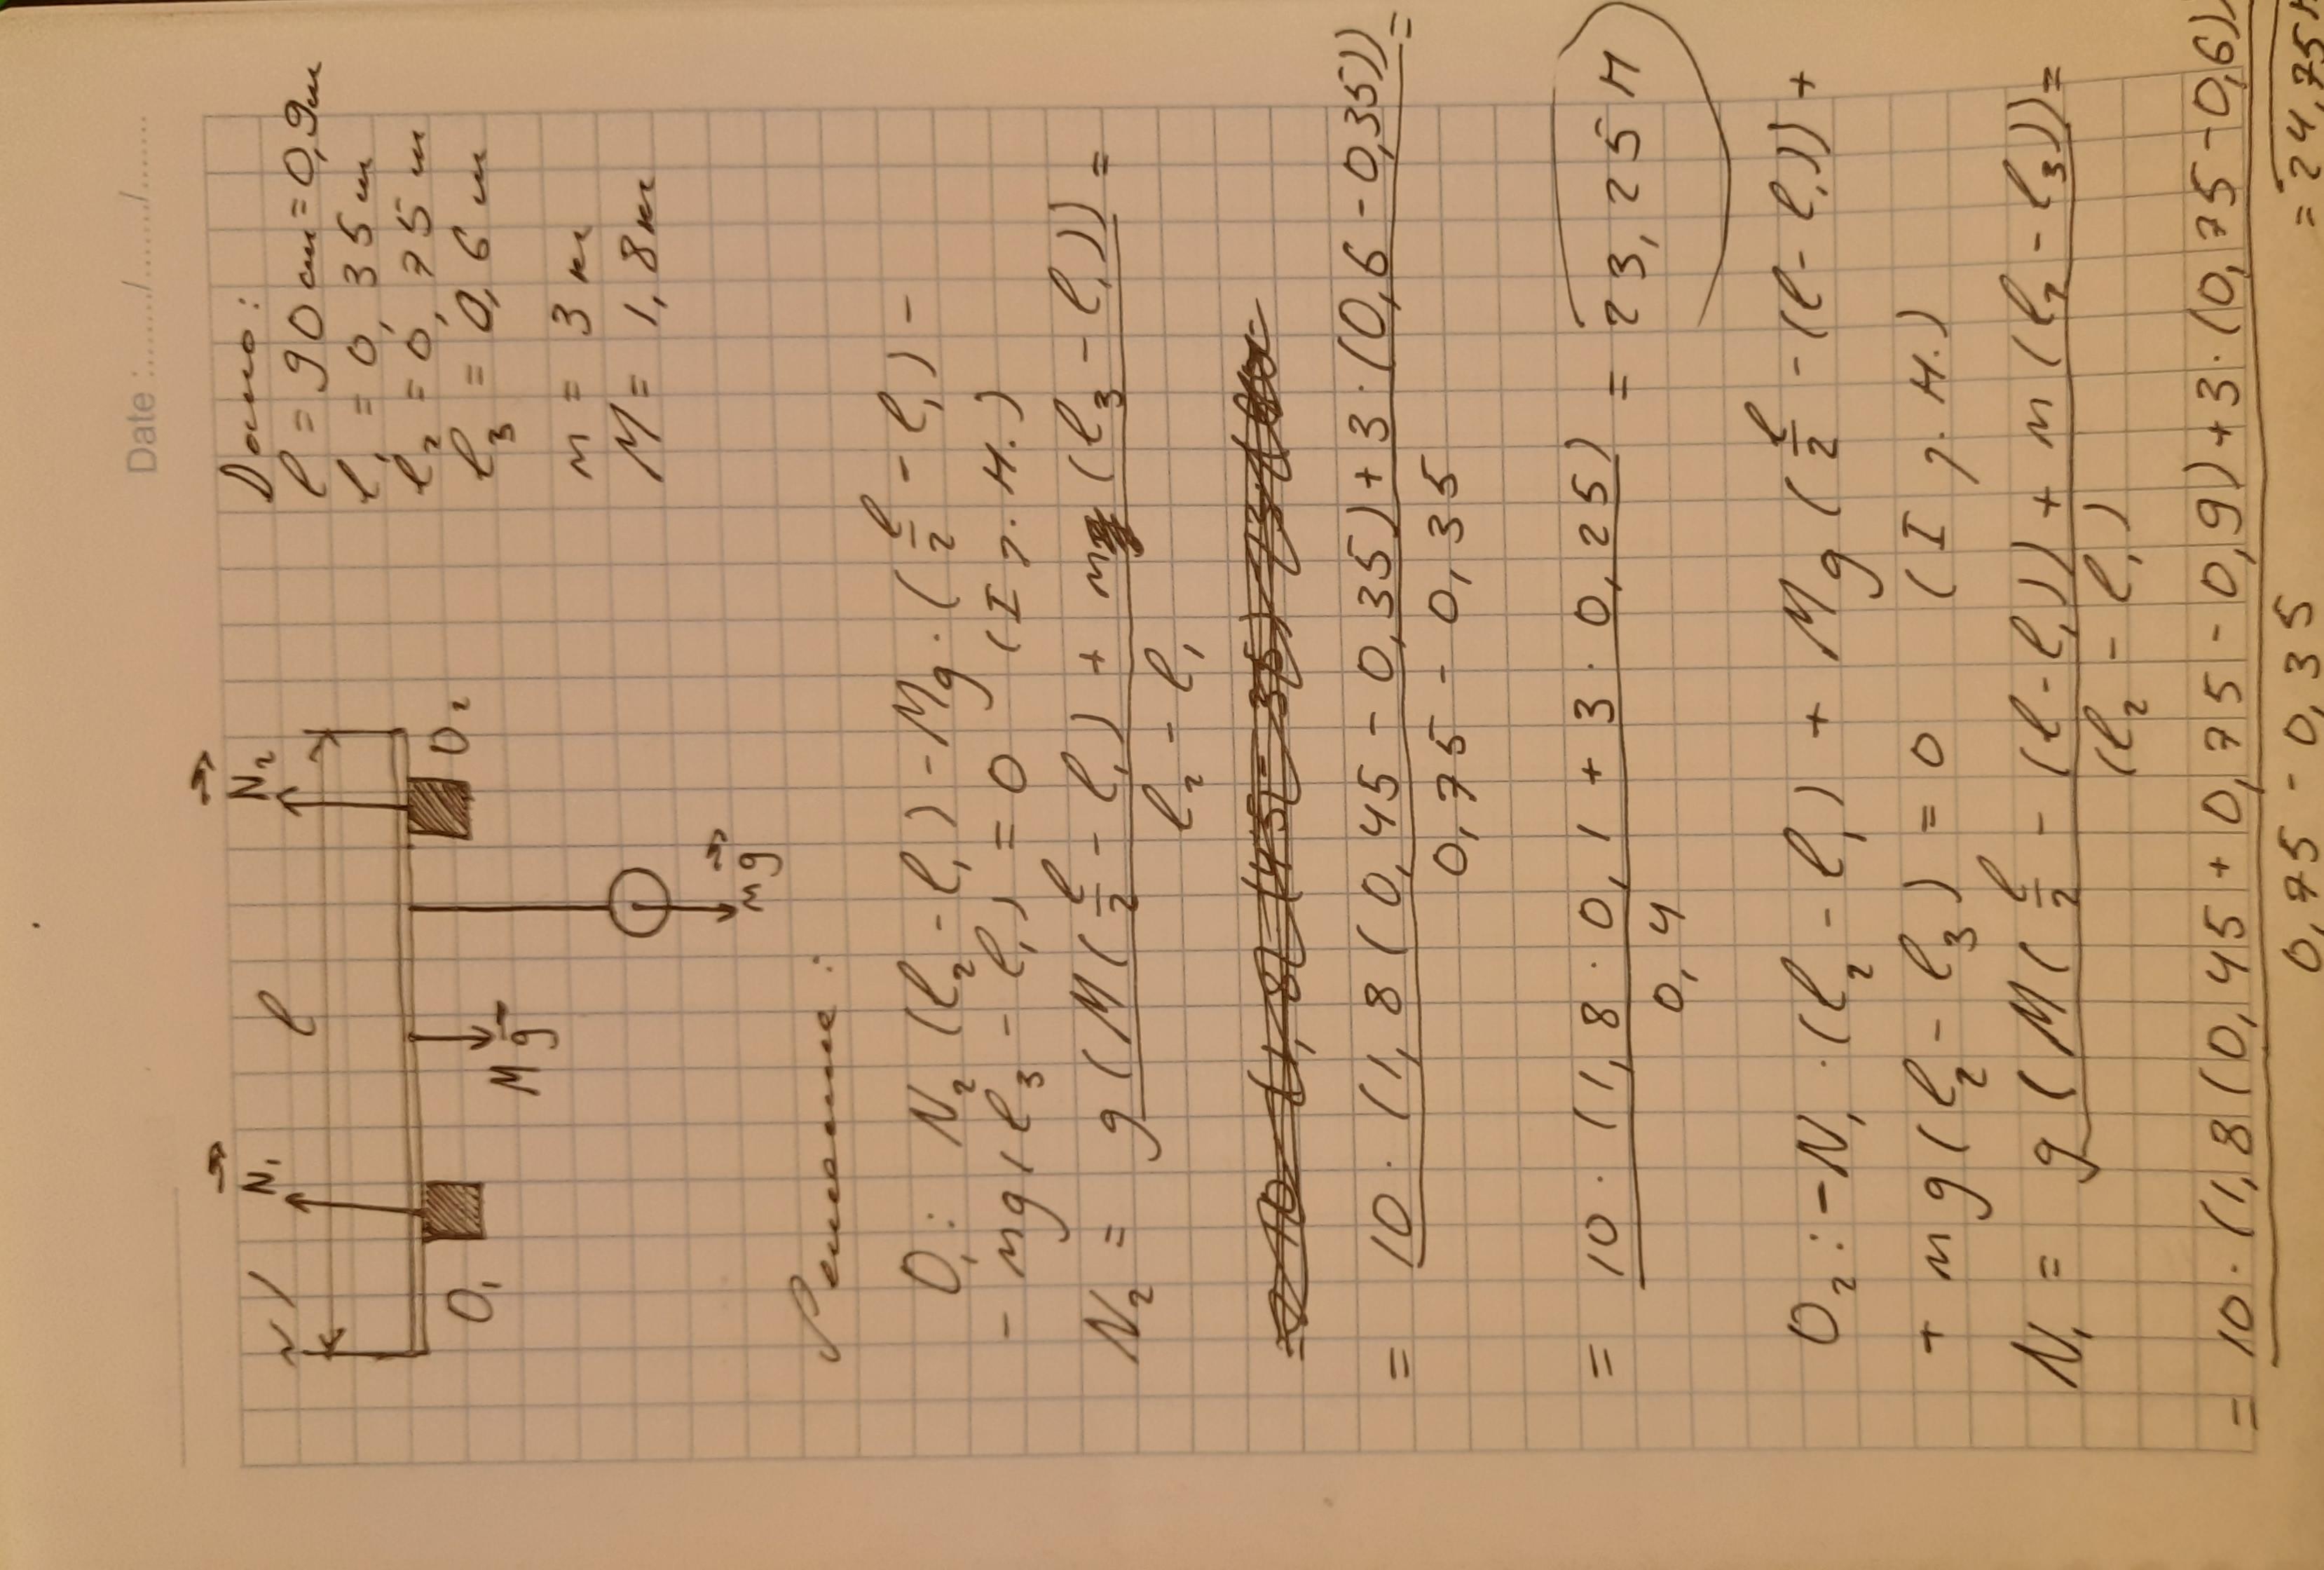 Date :....../....../......
N / l
N₁ N₂
O₁ O₂
Mg
mg
Дано:
l = 90 см = 0,9м
l₁ = 0,35 м
l₂ = 0,75 м
l₃ = 0,6 м
m = 3 кг
M = 1,8кг
Решение:
O₁: N₂ (l₂ - l₁) - Mg · (l/2 - l₁) -
- mg (l₃ - l₁) = 0 (I у. н.)
N₂ = g (M (l/2 - l₁) + m (l₃ - l₁)) / l₂ - l₁ =
= 10 · (1,8 (0,45 - 0,35) + 3 · (0,6 - 0,35)) / 0,75 - 0,35 =
= 10 · (1,8 · 0,1 + 3 · 0,25) / 0,4 = 23,25 Н
O₂: -N₁ · (l₂ - l₁) + Mg (l/2 - (l - l₁)) +
+ mg (l₂ - l₃) = 0 (I у. н.)
N₁ = g (M (l/2 - (l - l₁)) + m (l₂ - l₃)) / (l₂ - l₁) =
= 10 · (1,8 (0,45 + 0,75 - 0,9) + 3 · (0,75 - 0,6)) / 0,75 - 0,35
= 24,75Н